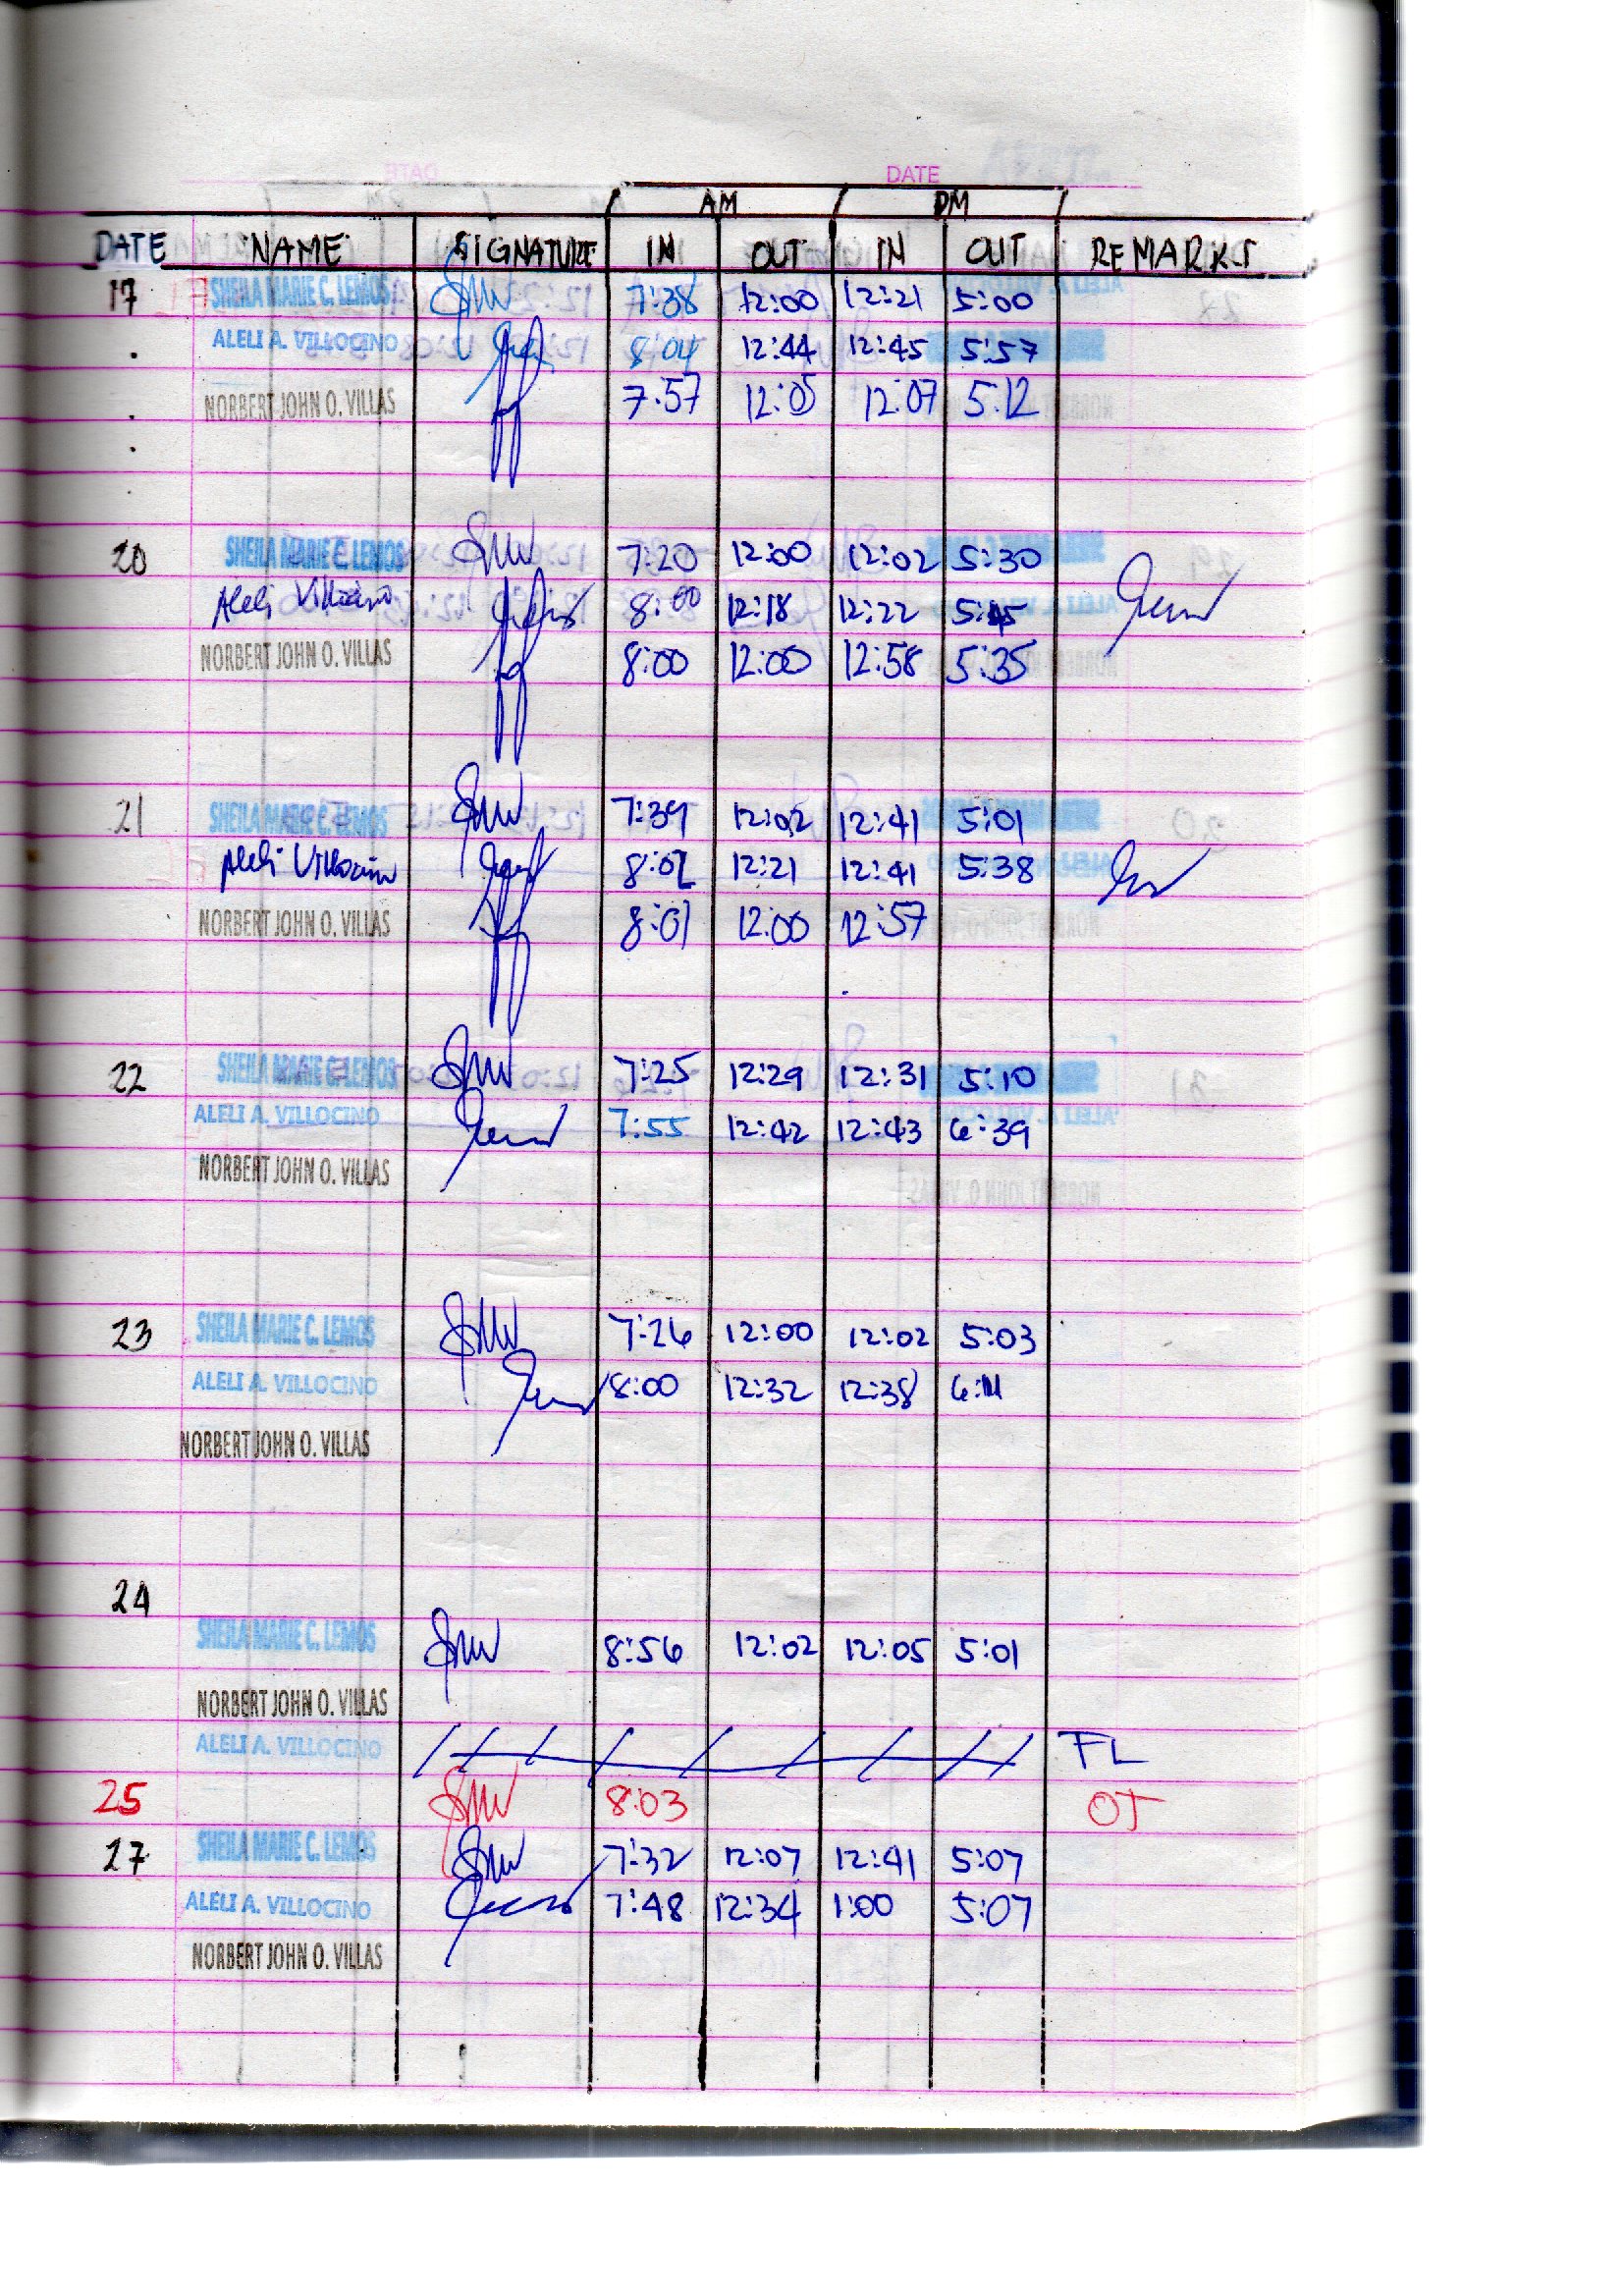 DATE
AM PM
DATE NAME SIGNATURE IN OUT IN OUT REMARKS
17 SHEILA MARIE C. LEMOS 7:38 12:00 12:21 5:00
ALELI A. VILLOCINO 8:04 12:44 12:45 5:57
NORBERT JOHN O. VILLAS 7:57 12:05 12:07 5:12
20 SHEILA MARIE C. LEMOS 7:20 12:00 12:02 5:30
Aleli Villocino 8:00 12:18 12:22 5:45
NORBERT JOHN O. VILLAS 8:00 12:00 12:58 5:35
21 SHEILA MARIE C. LEMOS 7:39 12:02 12:41 5:01
Aleli Villocino 8:02 12:21 12:41 5:38
NORBERT JOHN O. VILLAS 8:01 12:00 12:57
22 SHEILA MARIE C. LEMOS 7:25 12:29 12:31 5:10
ALELI A. VILLOCINO 7:55 12:42 12:43 6:39
NORBERT JOHN O. VILLAS
23 SHEILA MARIE C. LEMOS 7:26 12:00 12:02 5:03
ALELI A. VILLOCINO 8:00 12:32 12:38 6:11
NORBERT JOHN O. VILLAS
24
SHEILA MARIE C. LEMOS 8:56 12:02 12:05 5:01
NORBERT JOHN O. VILLAS
ALELI A. VILLOCINO FL
25 8:03 OT
27 SHEILA MARIE C. LEMOS 7:32 12:07 12:41 5:07
ALELI A. VILLOCINO 7:48 12:34 1:00 5:07
NORBERT JOHN O. VILLAS